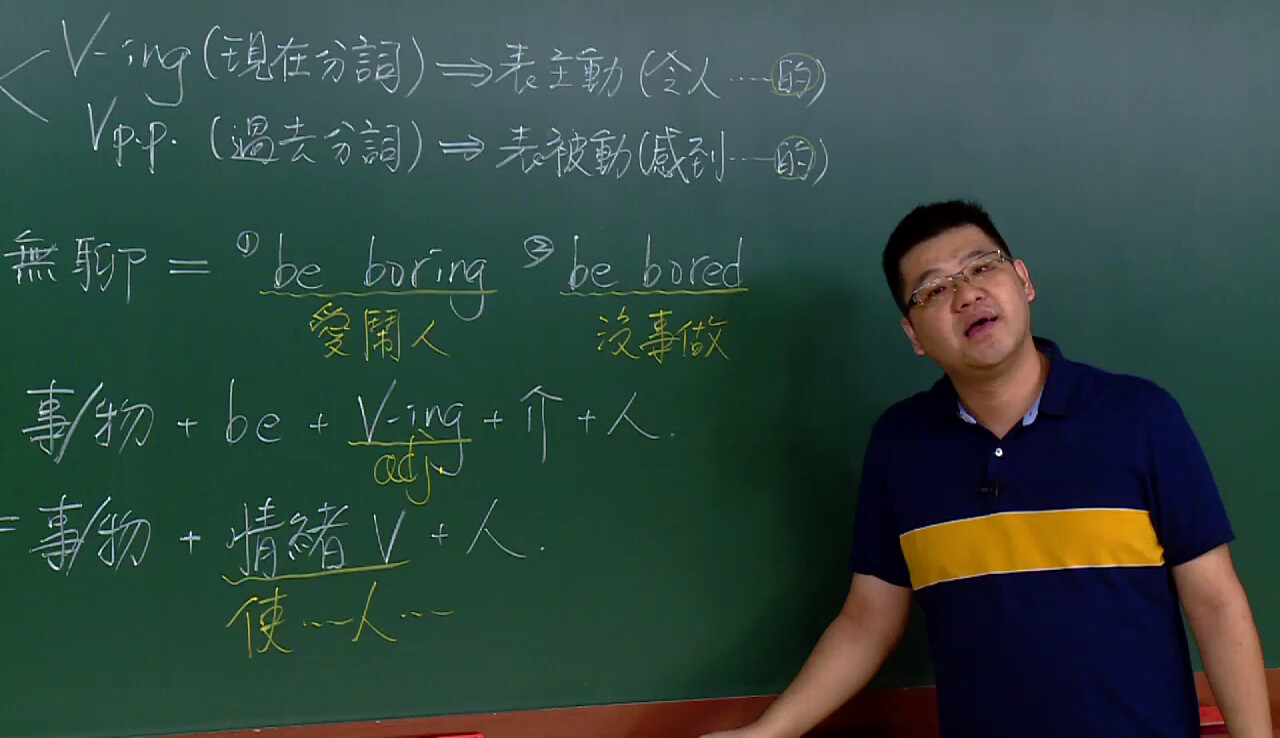 V-ing (現在分詞) ⇒ 表主動 (令人……的)
Vp.p. (過去分詞) ⇒ 表被動 (感到……的)
無聊 = ① be boring ② be bored
愛鬧人 沒事做
事/物 + be + V-ing + 介 + 人.
adj.
= 事/物 + 情緒 V + 人.
使……人……